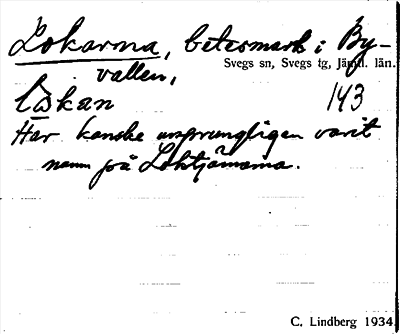 Lokarna, betesmark i By-
Svegs sn, Svegs tg, Jämtl. län.
vallen,
kan 143
Har kanske ursprungligen varit
namn på Loktjärnarna.
C. Lindberg 1934.